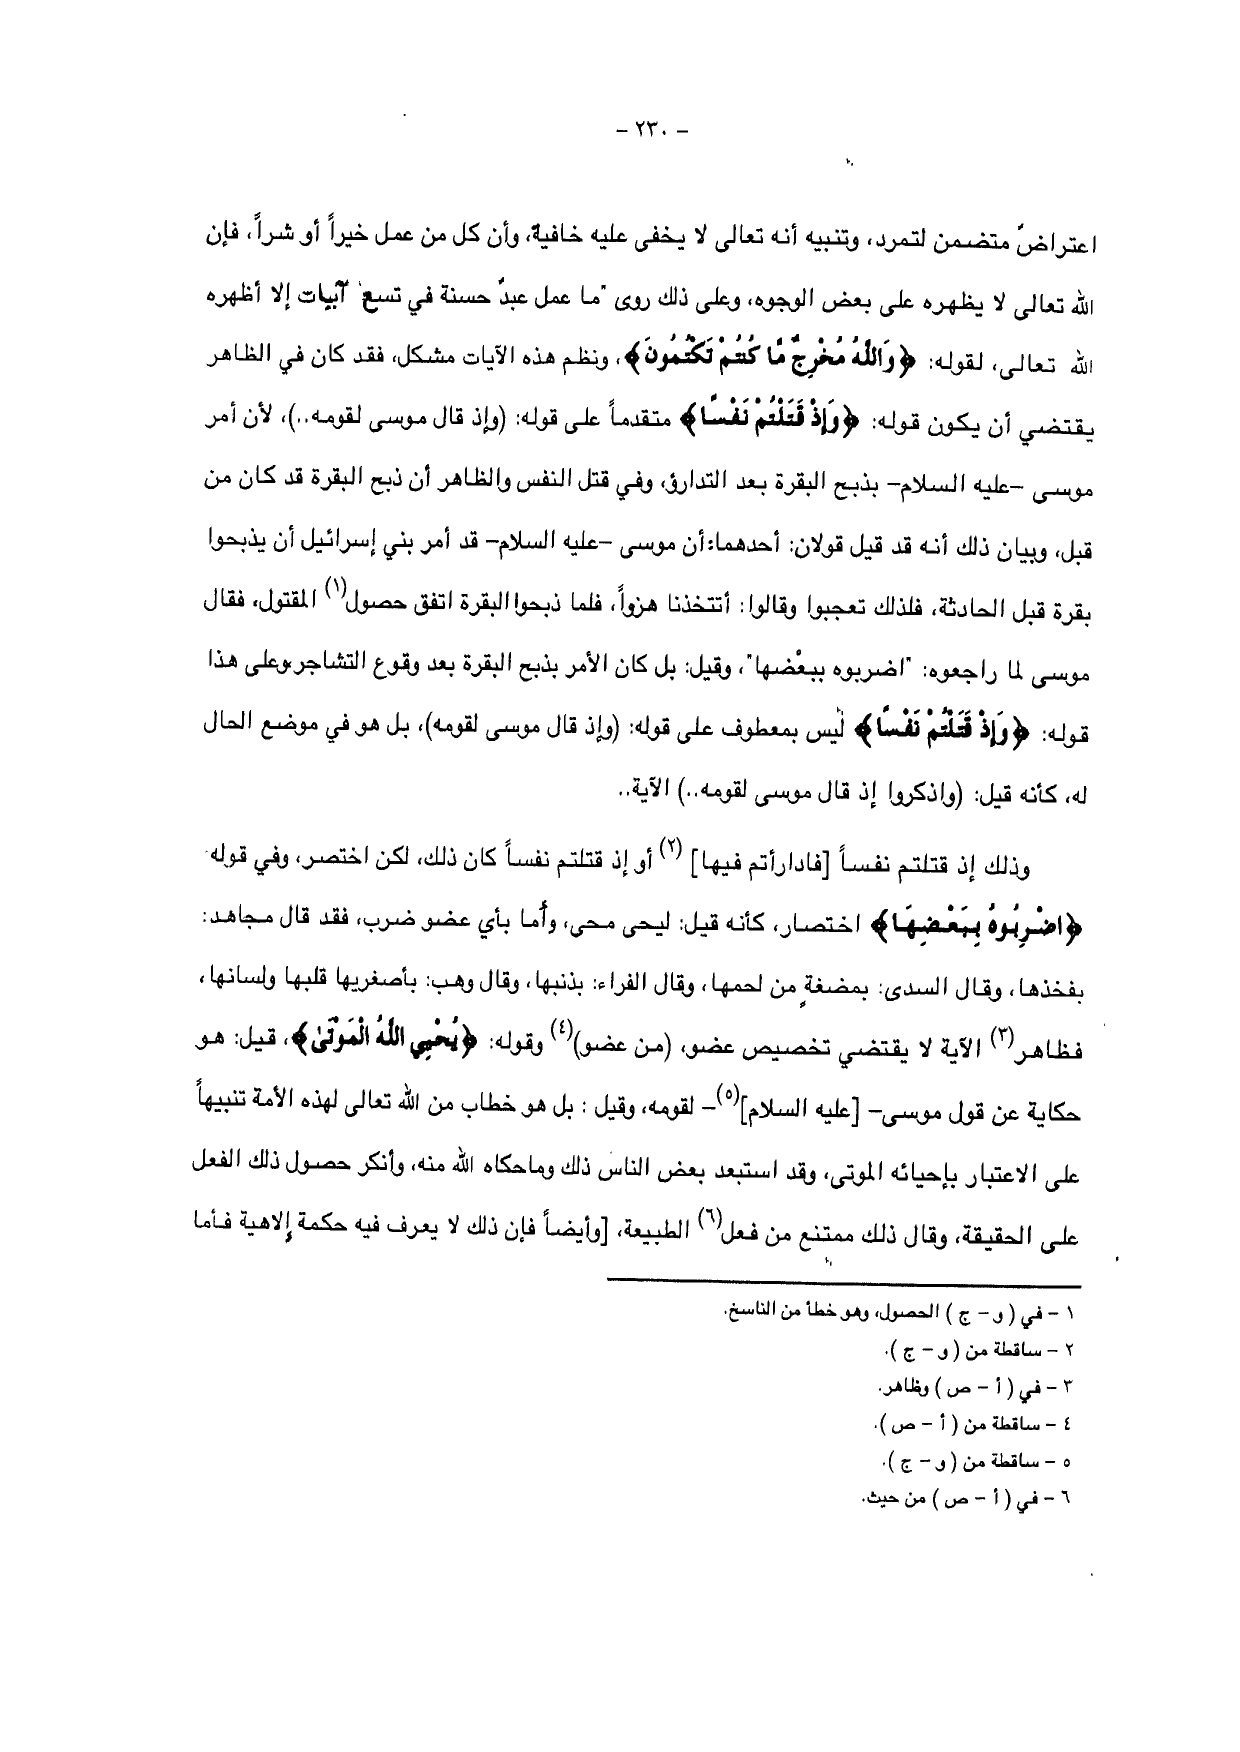 - ٢٣٠ -
اعتراضٌ متضمن لتمرد، وتنبيه أنه تعالى لا يخفى عليه خافية، وأن كل من عمل خيراً أو شراً، فإن
الله تعالى لا يظهره على بعض الوجوه، وعلى ذلك روى "ما عمل عبدٌ حسنة في تسع آبيات إلا أظهره
الله تعالى، لقوله: ﴿وَاللَّهُ مُخْرِجٌ مَّا كُنتُمْ تَكْتُمُونَ﴾، ونظم هذه الآيات مشكل، فقد كان في الظاهر
يقتضي أن يكون قوله: ﴿وَإِذْ قَتَلْتُمْ نَفْسًا﴾ متقدماً على قوله: (وإذ قال موسى لقومه..)، لأن أمر
موسى -عليه السلام- بذبح البقرة بعد التدارؤ، وفي قتل النفس والظاهر أن ذبح البقرة قد كان من
قبل، وبيان ذلك أنه قد قيل قولان: أحدهما: أن موسى -عليه السلام- قد أمر بني إسرائيل أن يذبحوا
بقرة قبل الحادثة، فلذلك تعجبوا وقالوا: أتتخذنا هزواً، فلما ذبحوا البقرة اتفق حصول(١) المقتول، فقال
موسى لما راجعوه: "اضربوه ببعْضها"، وقيل: بل كان الأمر بذبح البقرة بعد وقوع التشاجر، وعلى هذا
قوله: ﴿وَإِذْ قَتَلْتُمْ نَفْسًا﴾ ليس بمعطوف على قوله: (وإذ قال موسى لقومه)، بل هو في موضع الحال
له، كأنه قيل: (واذكروا إذ قال موسى لقومه..) الآية..
وذلك إذ قتلتم نفساً [فادارأتم فيها] (٢) أو إذ قتلتم نفساً كان ذلك، لكن اختصر، وفي قوله
﴿اضْرِبُوهُ بِبَعْضِهَا﴾ اختصار، كأنه قيل: ليحى محى، وأما بأي عضو ضرب، فقد قال مجاهد:
بفخذها، وقال السدى: بمضغةٍ من لحمها، وقال الفراء: بذنبها، وقال وهب: بأصغريها قلبها ولسانها،
فظاهر(٣) الآية لا يقتضي تخصيص عضو، (من عضو)(٤) وقوله: ﴿يُحْيِي اللَّهُ الْمَوْتَىٰ﴾، قيل: هو
حكاية عن قول موسى- [عليه السلام](٥)- لقومه، وقيل : بل هو خطاب من الله تعالى لهذه الأمة تنبيهاً
على الاعتبار بإحيائه الموتى، وقد استبعد بعض الناس ذلك وماحكاه الله منه، وأنكر حصول ذلك الفعل
على الحقيقة، وقال ذلك ممتنع من فعل(٦) الطبيعة، [وأيضاً فإن ذلك لا يعرف فيه حكمة إلاهية فأما
١ - في ( و - ج ) الحصول، وهو خطأ من الناسخ.
٢ - ساقطة من ( و - ج ).
٣ - في ( أ - ص ) وظاهر.
٤ - ساقطة من ( أ - ص ).
٥ - ساقطة من ( و - ج ).
٦ - في ( أ - ص ) من حيث.